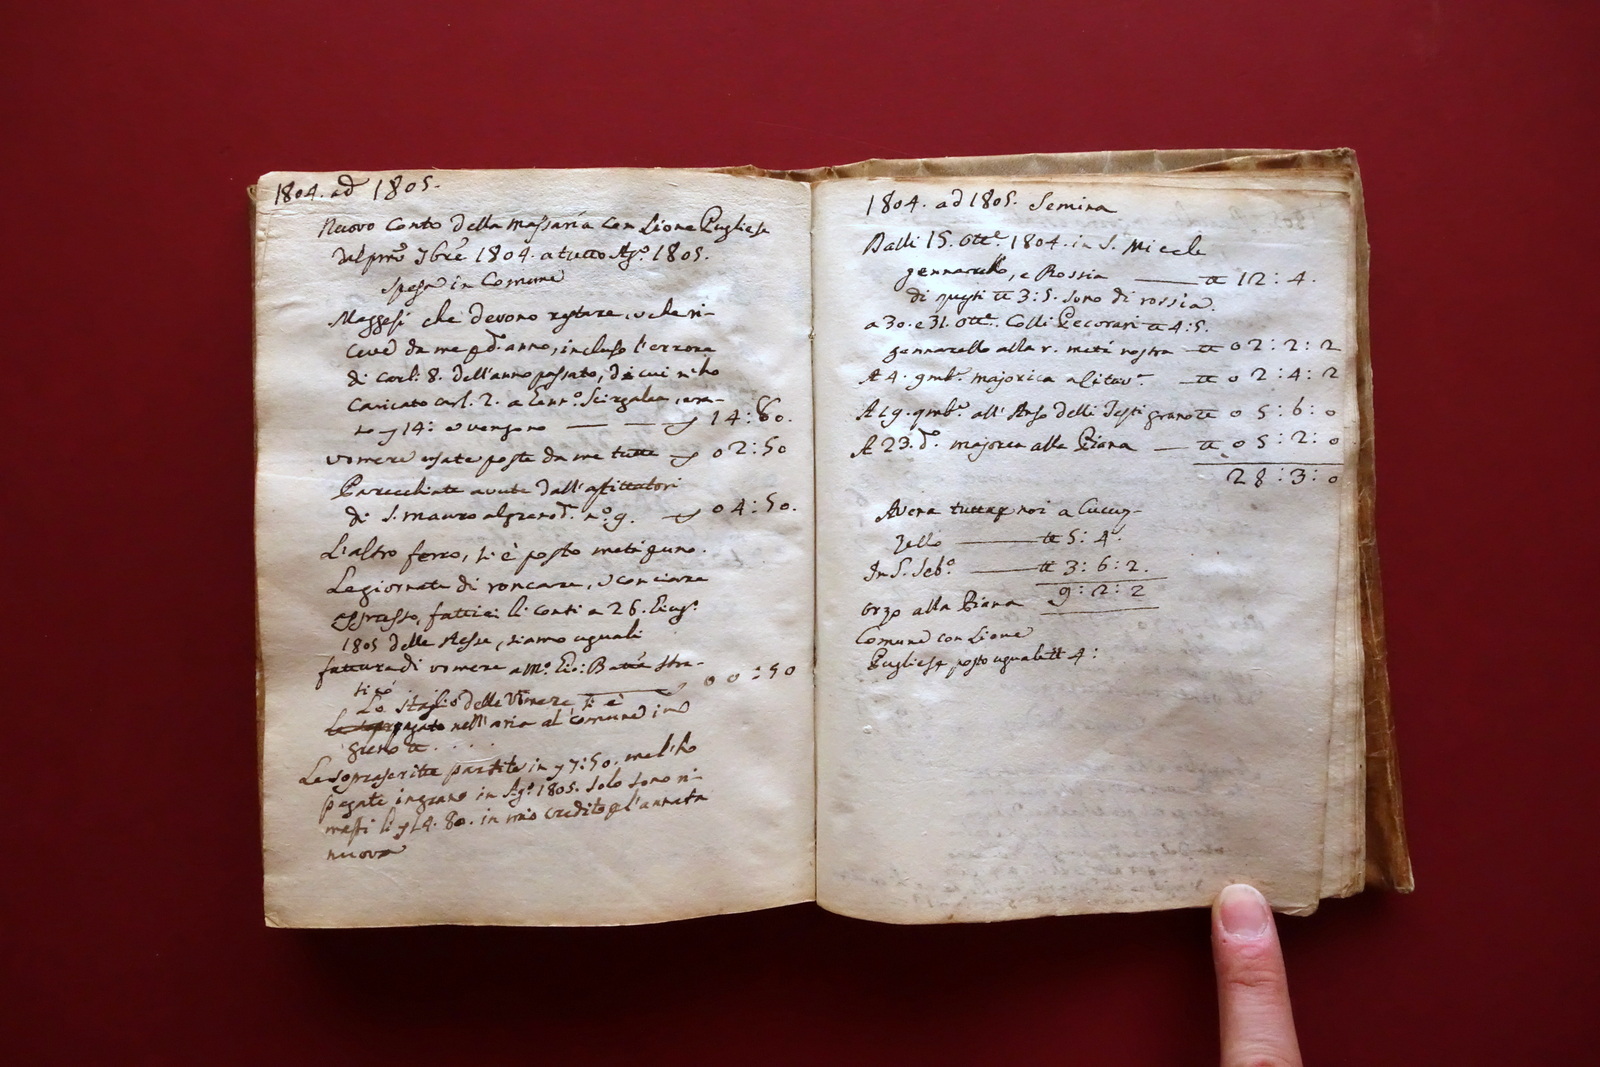 1804. ad 1805.
Nuovo Conto della Massaria con Lione Pugliese
dal pmo 7bre 1804. a tutto Agº. 1805.
spesa in Comune
Maggesi che devono restare, o che ri-
ceve da me qd. anno, incluso l'errore
di carl: 8. dell'anno passato, di cui n'ho
caricato carl. 2. a
14: e vengono 14:80.
vomere usate poste da me tutte 02:50
Parecchiate avute dall'affittatori
di S. Mauro al nº. 9. 04:50.
L'altro ferro, si è posto metà
Le giornate di roncare, e conciare
fattici li conti a 26. Giug.
1805 delle stesse, siamo uguali
fattura di vomere a Mº. Stra-
ticò 00:50
Lo staglio delle Vomere si è
pagato nell'aria al comune in
grano
Le soprascritte partite in 7:50. me l'ho
pagate in grano in Agº. 1805. solo sono ri-
masti li 14. 80. in mio credito l'annata
nuova
1804. ad 1805. Semina
Dalli 15. otte. 1804. in S. Micele
gennarello, e Rossia 12:4.
di questi 3:5. sono di rossia.
a 30. e 31. otte. Colli Pecorari 4:5.
gennarello alla r. metà nostra 02:2:2
A 4. 9mbe. majorica 02:4:2
A 19. 9mbe. all' delli Testi grano 05:6:0
A 23. do. majorca alla Piana 05:2:0
28:3:0
Avena tutta noi a Cucuz-
zello 5:4.
In S. Sebº. 3:6:2.
9:2:2
orzo alla Piana
Comune con Lione
Pugliese posto uguale 4: